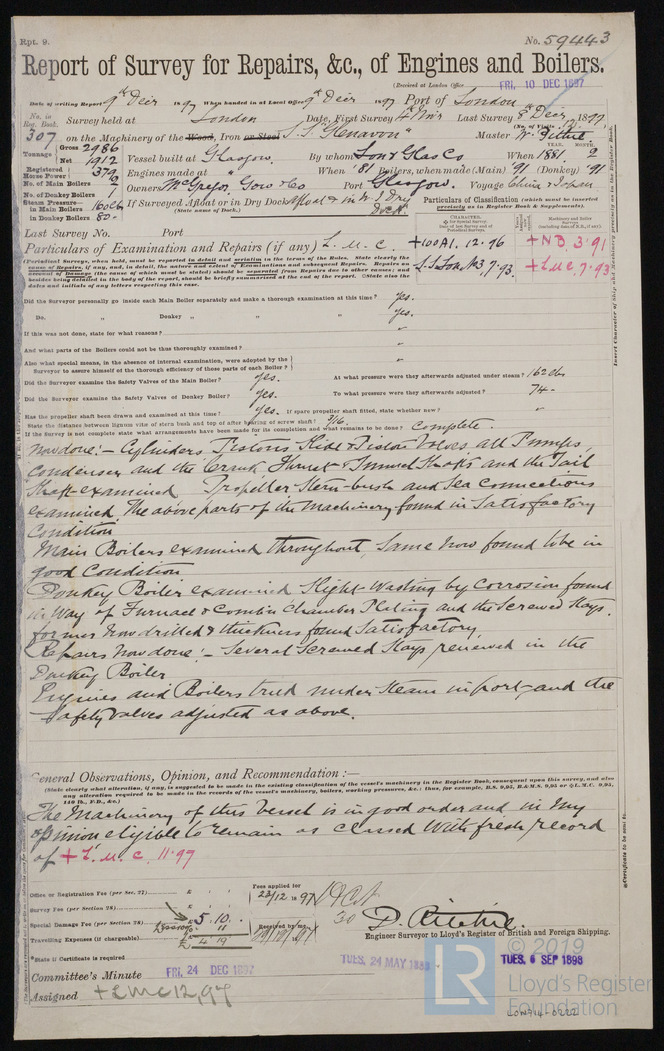 Rpt. 9.
No. 59443
Report of Survey for Repairs, &c., of Engines and Boilers.
(Received at London Office FRI. 10 DEC 1897
Date of writing Report 9th Decr 1897 When handed in at Local Office 9th Decr 1897 Port of London
No. in Reg. Book. 307
Survey held at London Date, First Survey Last Survey 8th Decr 1897
on the Machinery of the Wood, Iron or Steel S.S. "Glenavon" Master
Tonnage Gross 2986
Net 1912
Vessel built at Glasgow. By whom Lon & Glas Co When 1881 YEAR. MONTH. 2
Registered Horse Power 379
Engines made at " When '81 Boilers, when made (Main) '91 (Donkey) '91
No. of Main Boilers 2
No. of Donkey Boilers 1
Owners McGregor, Gow & Co Port Glasgow. Voyage China & Japan
Steam Pressure in Main Boilers 160 lb
in Donkey Boilers 80
If Surveyed Afloat or in Dry Dock Afloat & in Dry Dock
(State name of Dock.)
Particulars of Classification (which must be inserted precisely as in Register Book & Supplements).
Last Survey No. Port
Particulars of Examination and Repairs (if any) L. M. C.
+100A1. 12.96
+NB. 3.91
S.S. Lon. No3 7.93.
+LMC. 7.93
Did the Surveyor personally go inside each Main Boiler separately and make a thorough examination at this time? Yes.
Do. „ Donkey „ „ „ Yes.
If this was not done, state for what reasons? "
And what parts of the Boilers could not be thus thoroughly examined? "
Also what special means, in the absence of internal examination, were adopted by the Surveyor to assure himself of the thorough efficiency of those parts of each Boiler? "
Did the Surveyor examine the Safety Valves of the Main Boiler? Yes. At what pressure were they afterwards adjusted under steam? 162 lbs
Did the Surveyor examine the Safety Valves of Donkey Boiler? Yes. To what pressure were they afterwards adjusted? 74
Has the propeller shaft been drawn and examined at this time? Yes. If spare propeller shaft fitted, state whether new? "
State the distance between lignum vitæ of stern bush and top of after bearing of screw shaft? 3/16.
If the Survey is not complete state what arrangements have been made for its completion and what remains to be done? Complete.
Now done:- Cylinders Pistons Slide & Piston Valves all Pumps
Condenser and the Crank Thrust & Tunnel Shafts and the Tail
Shaft examined Propeller Stern-bush and Sea Connections
examined The above parts of the Machinery found in Satisfactory
Condition
Main Boilers examined throughout, same now found to be in
good Condition
Donkey Boiler examined Slight Wasting by Corrosion found
in Way of Furnace & Combn Chamber Plating and the Screwed Stays.
former now drilled & thickness found Satisfactory
Repairs now done:- Several Screwed Stays renewed in the
Donkey Boiler
Engines and Boilers tried under Steam in port and the
Safety Valves adjusted as above.
General Observations, Opinion, and Recommendation:—
(State clearly what alteration, if any, is suggested to be made in the existing classification of the vessel's machinery in the Register Book, consequent upon this survey, and also
any alteration required to be made in the records of the vessel's machinery, boilers, working pressures, &c.: thus, for example, B.S. 9,95, B.&M.S. 9,95 or +L.M.C. 9,95,
140 lb., F.D., &c.)
The Machinery of this Vessel is in good order and in my
opinion eligible to remain as classed with fresh record
of + L. M. C. 11.97
Office or Registration Fee (per Sec. 27) £
Survey Fee (per Section 28) £
Special Damage Fee (per Section 28) £ 5. 10.
Travelling Expenses (if chargeable) £ 4 19
Fees applied for
23/12 1897
Received by me,
D. Ritchie.
Engineer Surveyor to Lloyd's Register of British and Foreign Shipping.
*State if Certificate is required
Committee's Minute FRI. 24 DEC 1897
TUES. 24 MAY 1898
TUES. 6 SEP 1898
Assigned +LMC 12,97
© 2019
LR
Lloyd's Register
Foundation
LON714-0222